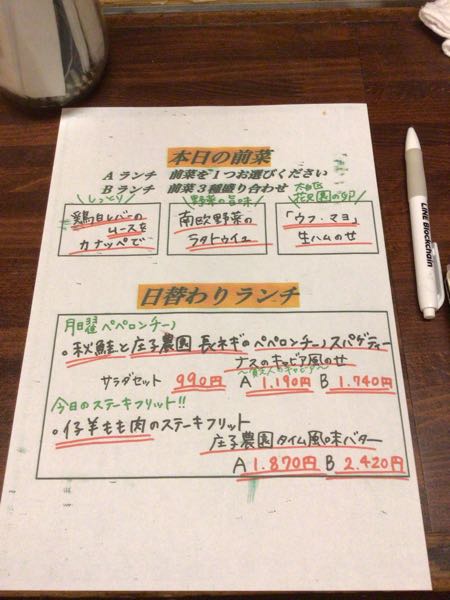 本日の前菜
Aランチ 前菜を1つお選びください
Bランチ 前菜3種盛り合わせ
しっとり
鶏白レバーの
ムースを
カナッペで
野菜の旨味
南欧野菜の
ラタトゥイユ
花沢園の卵
「ウフ・マヨ」
生ハムのせ
日替わりランチ
月曜ペペロンチーノ
。秋鮭と庄子農園 長ネギのペペロンチーノスパゲティー
ナスのキャビア風のせ
〜貧乏人のキャビア〜
サラダセット 990円 A 1.190円 B 1.740円
今日のステーキフリット!!
。仔羊もも肉のステーキフリット
庄子農園タイム風味バター
A 1.870円 B 2.420円
LINE Blockchain